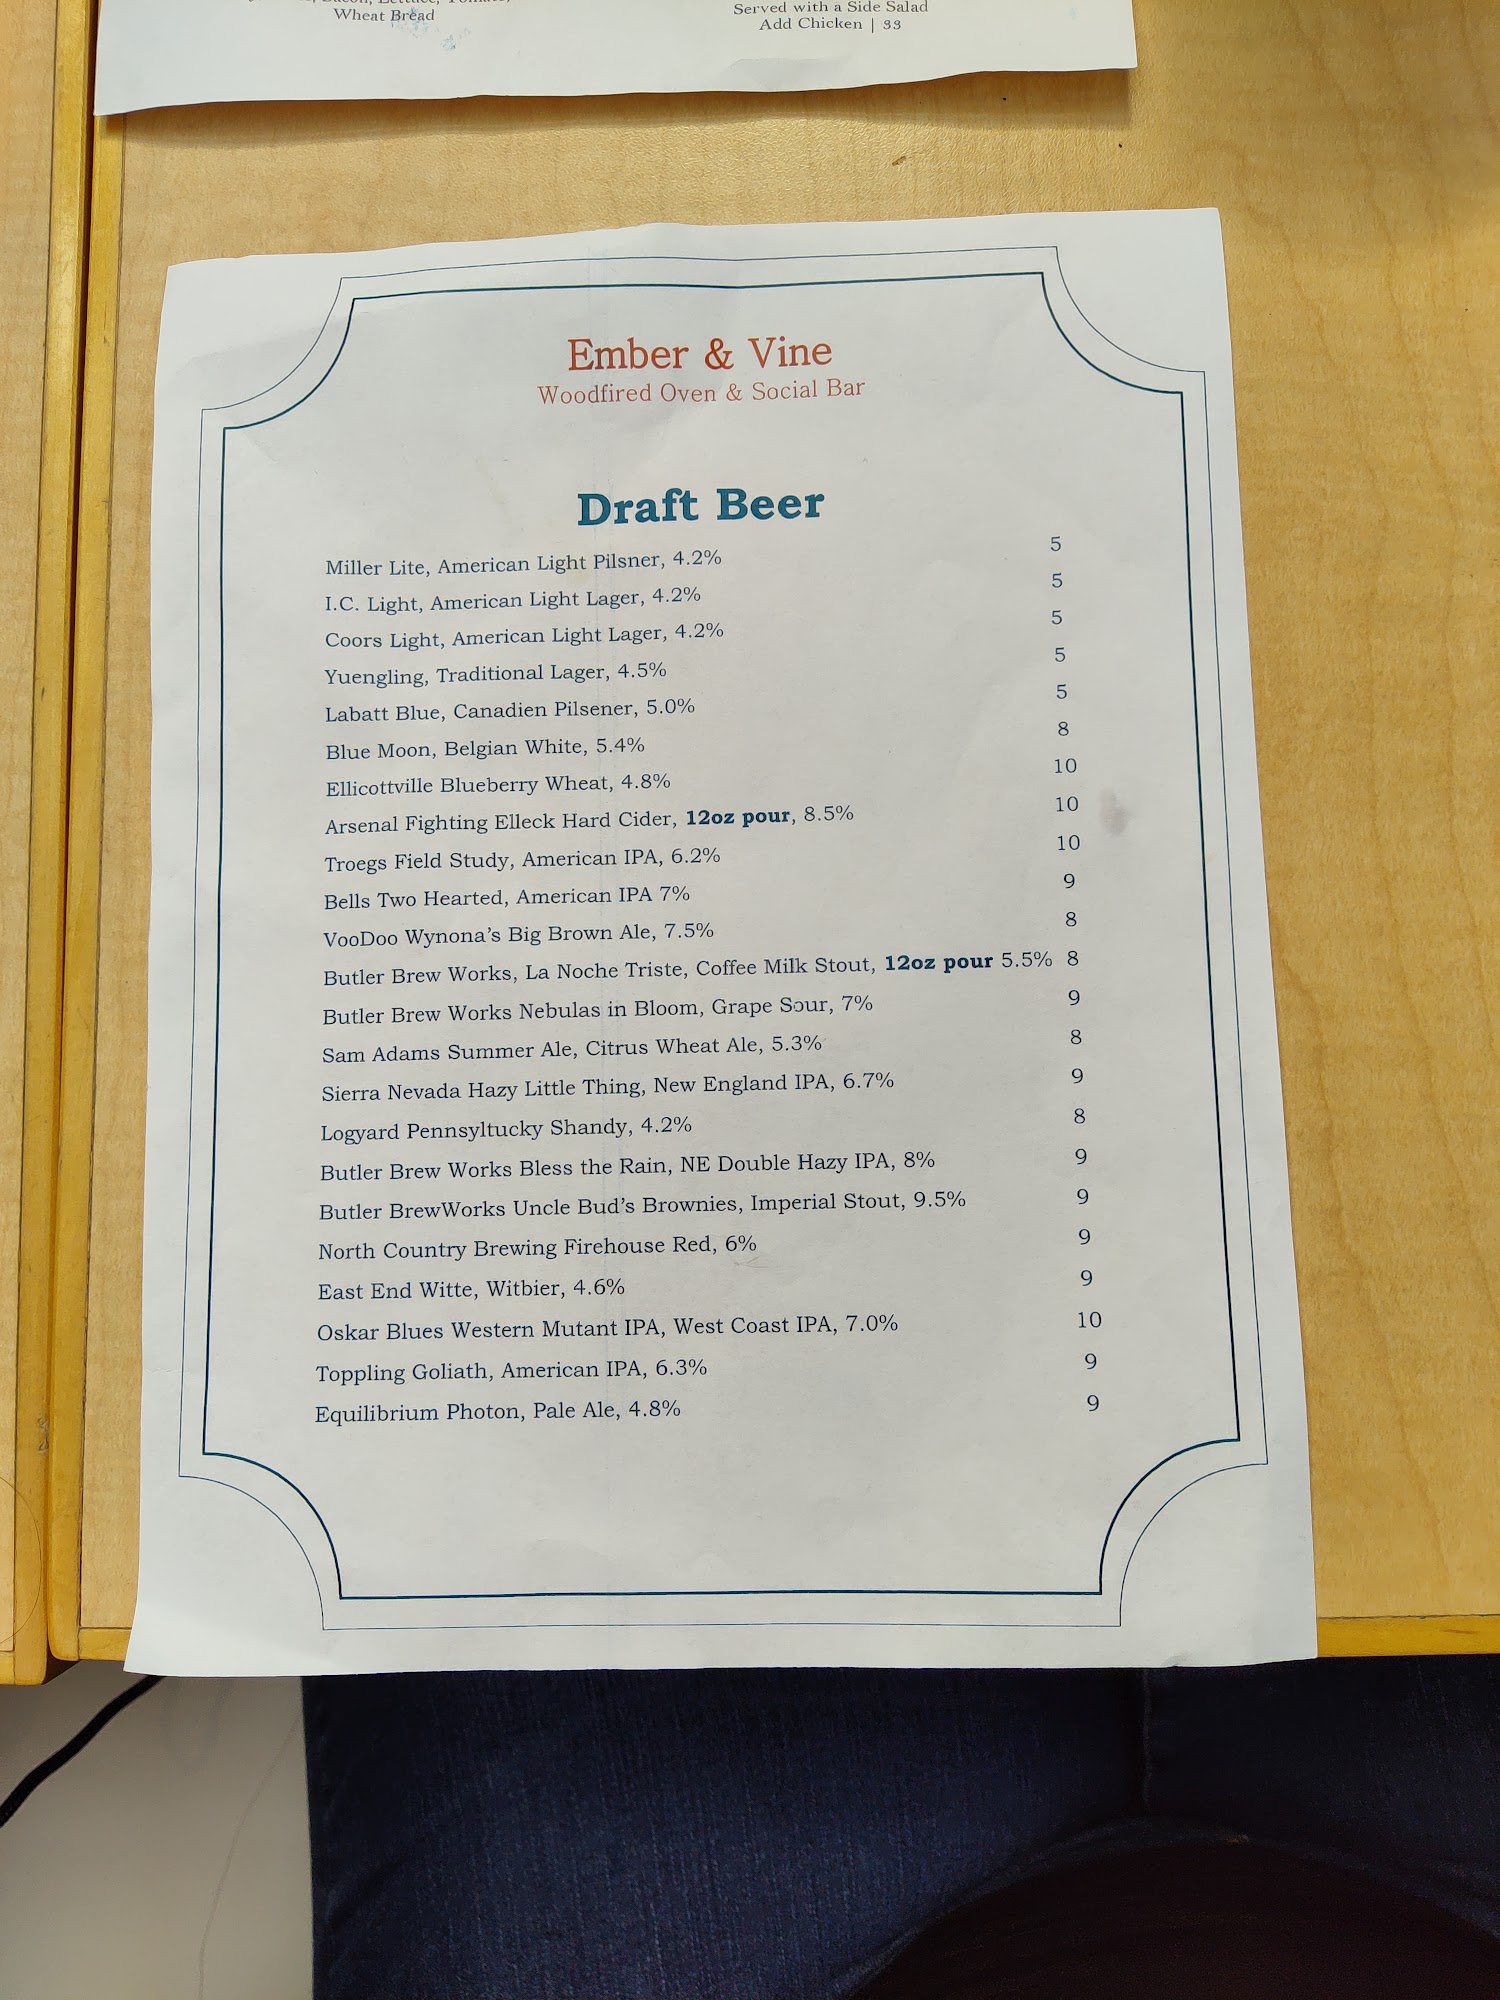 Wheat Bread
Served with a Side Salad
Add Chicken | 33
Ember & Vine
Woodfired Oven & Social Bar
Draft Beer
Miller Lite, American Light Pilsner, 4.2% 5
I.C. Light, American Light Lager, 4.2% 5
Coors Light, American Light Lager, 4.2% 5
Yuengling, Traditional Lager, 4.5% 5
Labatt Blue, Canadien Pilsener, 5.0% 5
Blue Moon, Belgian White, 5.4% 8
Ellicottville Blueberry Wheat, 4.8% 10
Arsenal Fighting Elleck Hard Cider, 12oz pour, 8.5% 10
Troegs Field Study, American IPA, 6.2% 10
Bells Two Hearted, American IPA 7% 9
VooDoo Wynona's Big Brown Ale, 7.5% 8
Butler Brew Works, La Noche Triste, Coffee Milk Stout, 12oz pour 5.5% 8
Butler Brew Works Nebulas in Bloom, Grape Sour, 7% 9
Sam Adams Summer Ale, Citrus Wheat Ale, 5.3% 8
Sierra Nevada Hazy Little Thing, New England IPA, 6.7% 9
Logyard Pennsyltucky Shandy, 4.2% 8
Butler Brew Works Bless the Rain, NE Double Hazy IPA, 8% 9
Butler BrewWorks Uncle Bud's Brownies, Imperial Stout, 9.5% 9
North Country Brewing Firehouse Red, 6% 9
East End Witte, Witbier, 4.6% 9
Oskar Blues Western Mutant IPA, West Coast IPA, 7.0% 10
Toppling Goliath, American IPA, 6.3% 9
Equilibrium Photon, Pale Ale, 4.8% 9